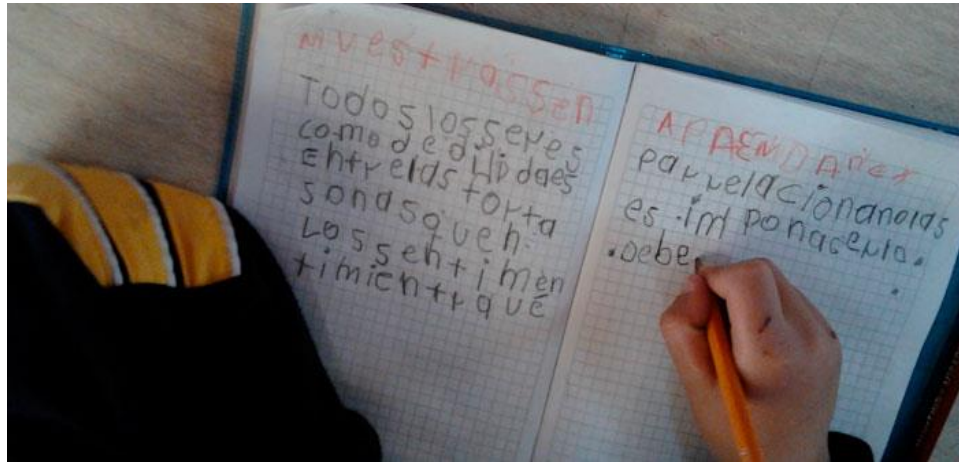 mvestrassen
Todos losseres
como dediHDdaes
Entrelastorta
sonasqueh
Lossehtimen
timientrque
APRENDAnex
parrelacionanolas
es.imponacento.
.Debe